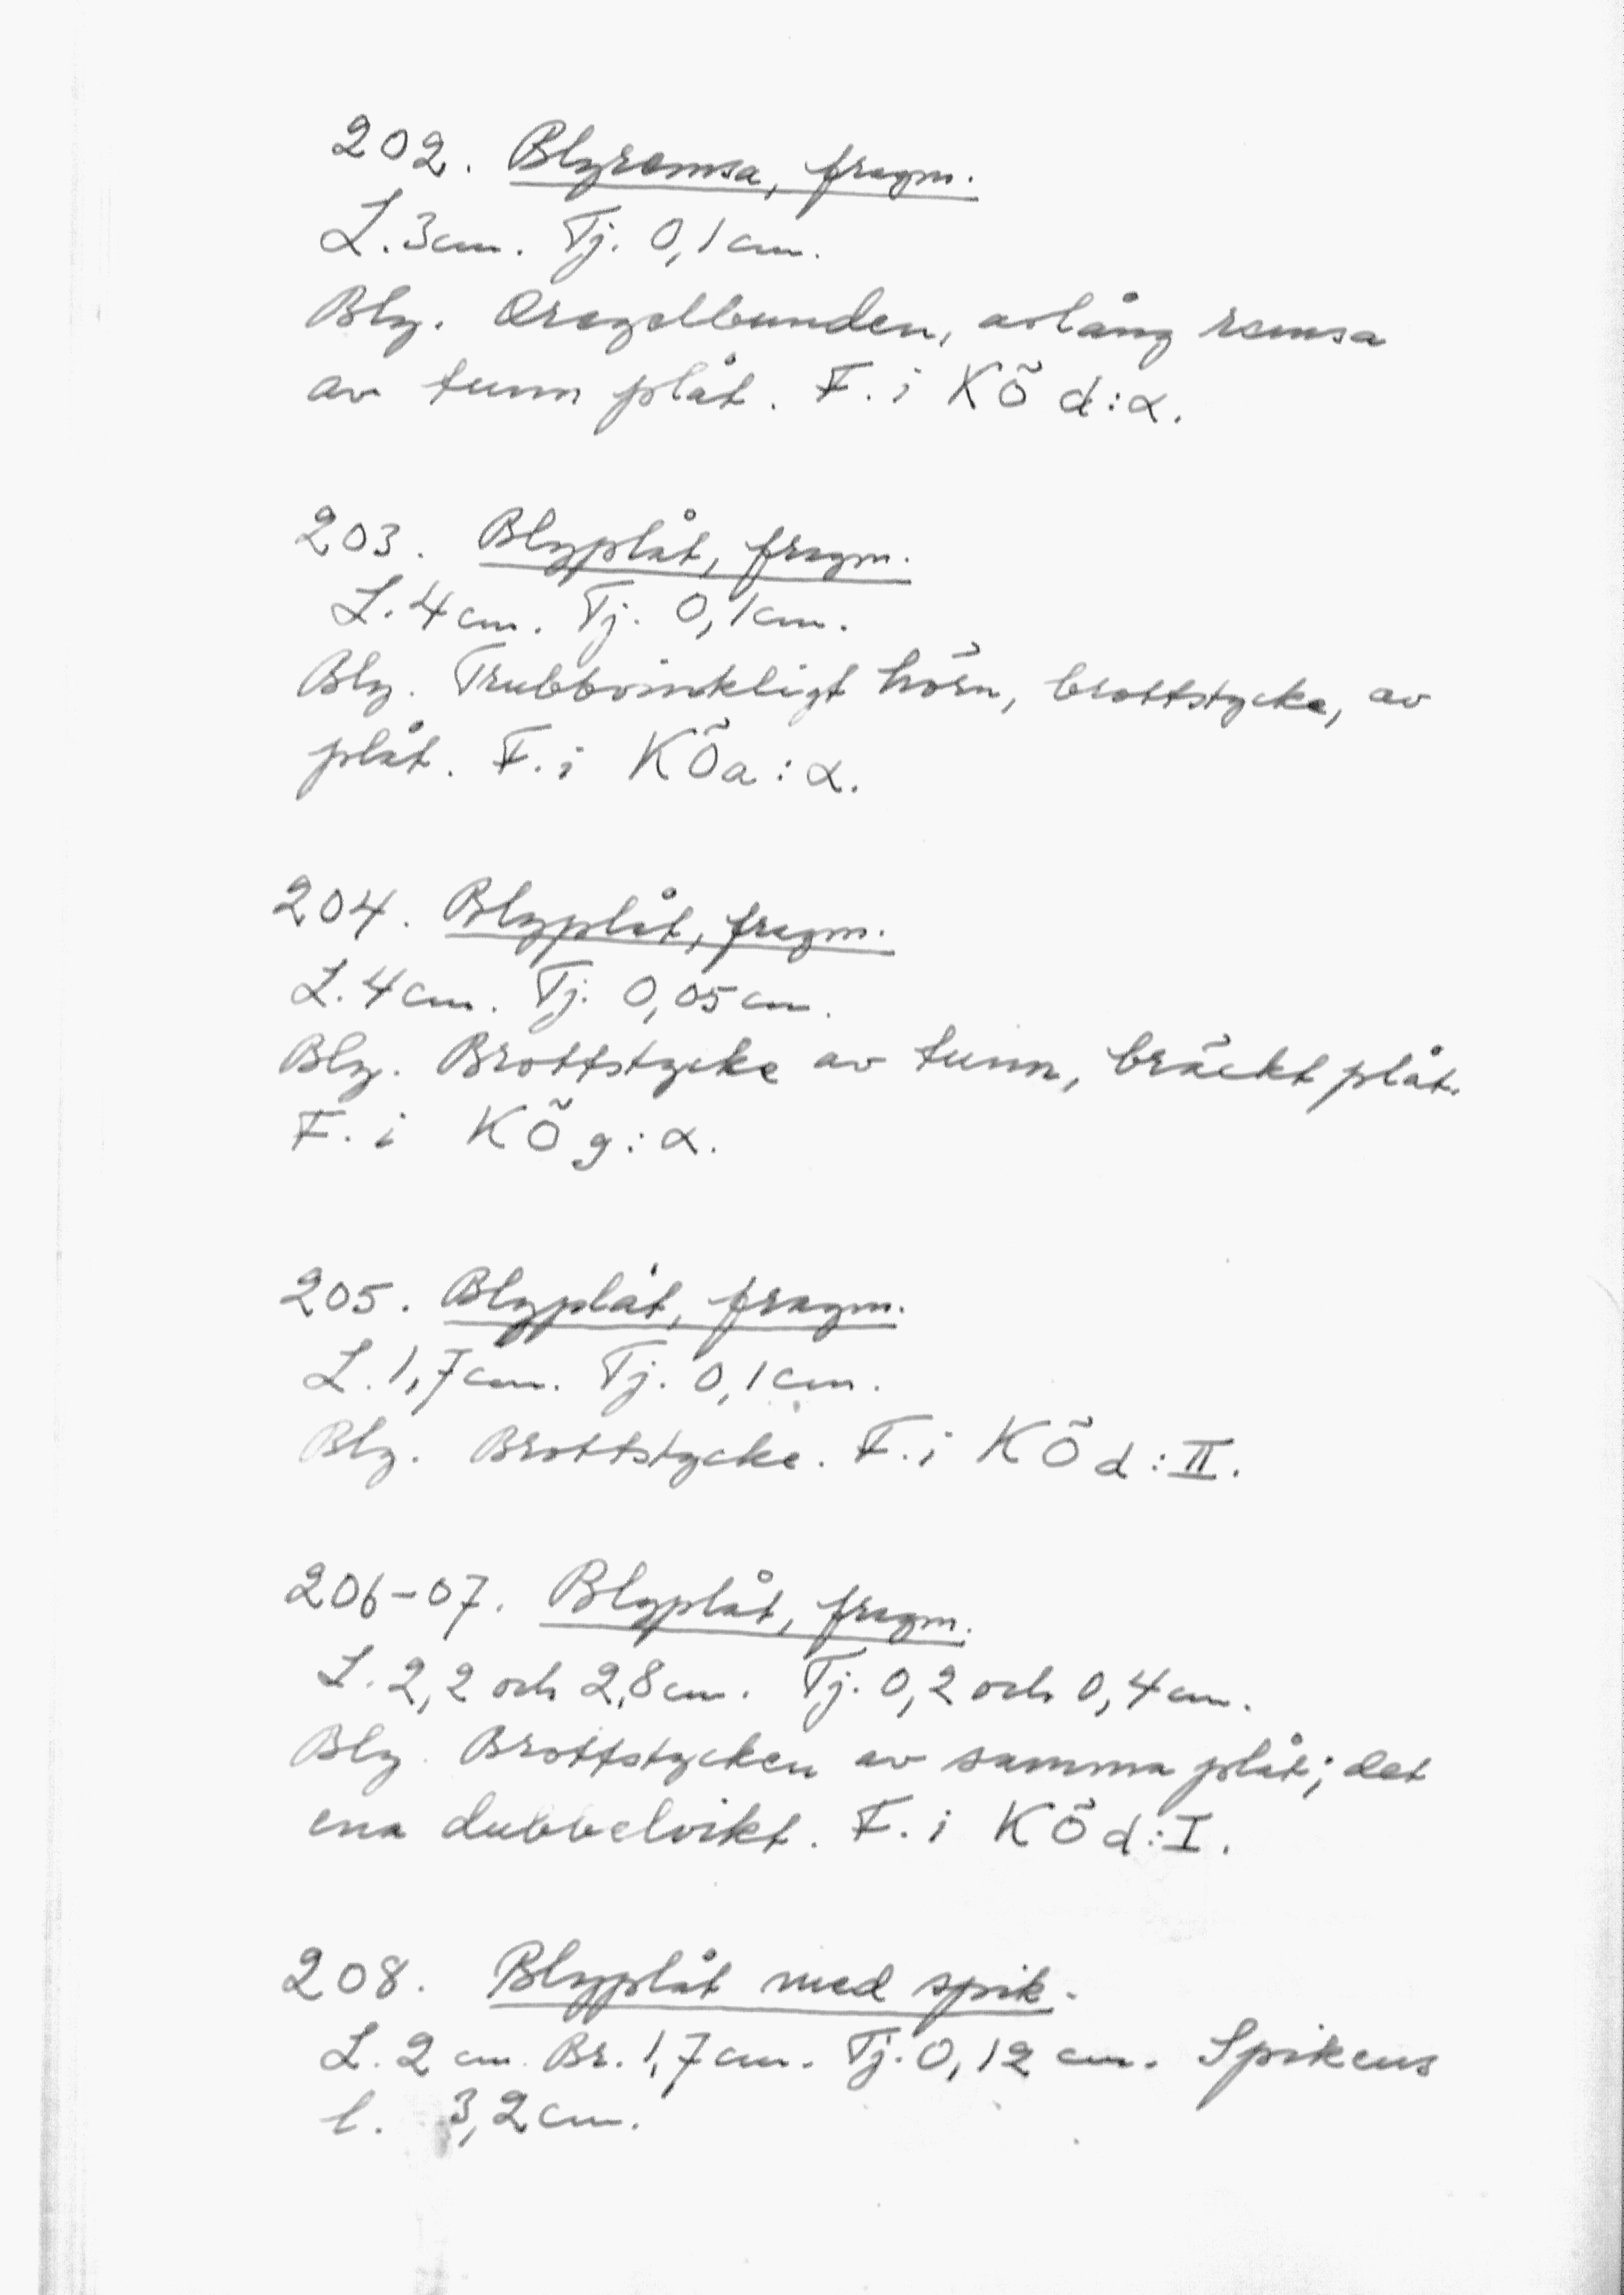 202. Blyremsa, fragm.
L. 3cm. Tj. 0,1 cm.
Bly. Oregelbunden, avlång remsa
av tunn plåt. F. i KÖ d:α.
203. Blyplåt, fragm.
L. 4 cm. Tj. 0,1 cm.
Bly. Trubbvinkligt hörn, brottstycke, av
plåt. F. i KÖa:α.
204. Blyplåt, fragm.
L. 4 cm. Tj. 0,05 cm.
Bly. Brottstycke av tunn, bräckt plåt.
F. i KÖg:α.
205. Blyplåt, fragm.
L. 1,7 cm. Tj. 0,1 cm.
Bly. Brottstycke. F. i KÖd:II.
206-07. Blyplåt, fragm.
L. 2,2 och 2,8 cm. Tj. 0,2 och 0,4 cm.
Bly. Brottstycken av samma plåt; det
ena dubbelvikt. F. i KÖd:I.
208. Blyplåt med spik.
L. 2 cm. Br. 1,7 cm. Tj. 0,12 cm. Spikens
l. 3,2 cm.